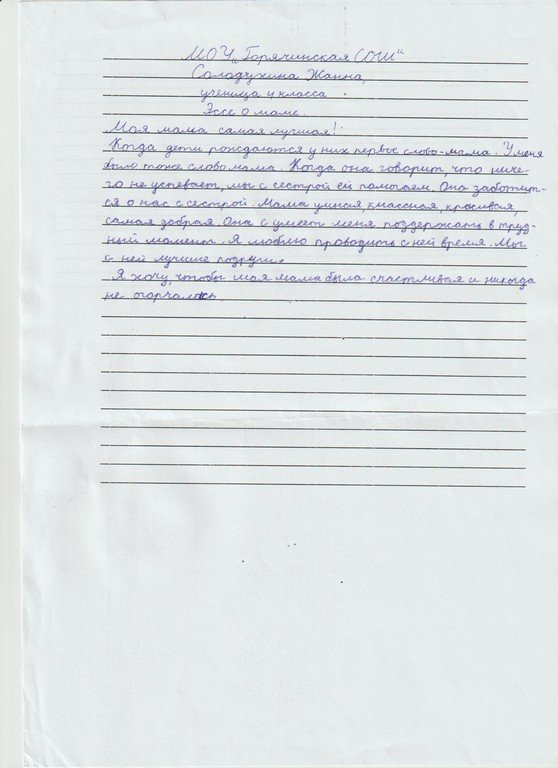 МОУ „Горячинская СОШ"
Солодухина Жанна,
ученица 4 класса
Эссе о маме.
Моя мама самая лучшая!
Когда дети рождаются у них первые слово-мама. У меня
было тоже слово мама. Когда она говорит, что ниче-
го не успевает, мы с сестрой ей помогаем. Она заботит-
ся о нас с сестрой. Мама умная, классная, красивая,
самая добрая. Она сумеет меня поддержать в труд-
ный момент. Я люблю проводить с ней время. Мы
с ней лучшие подруги.
Я хочу, чтобы моя мама была счастливая и никогда
не огорчалась